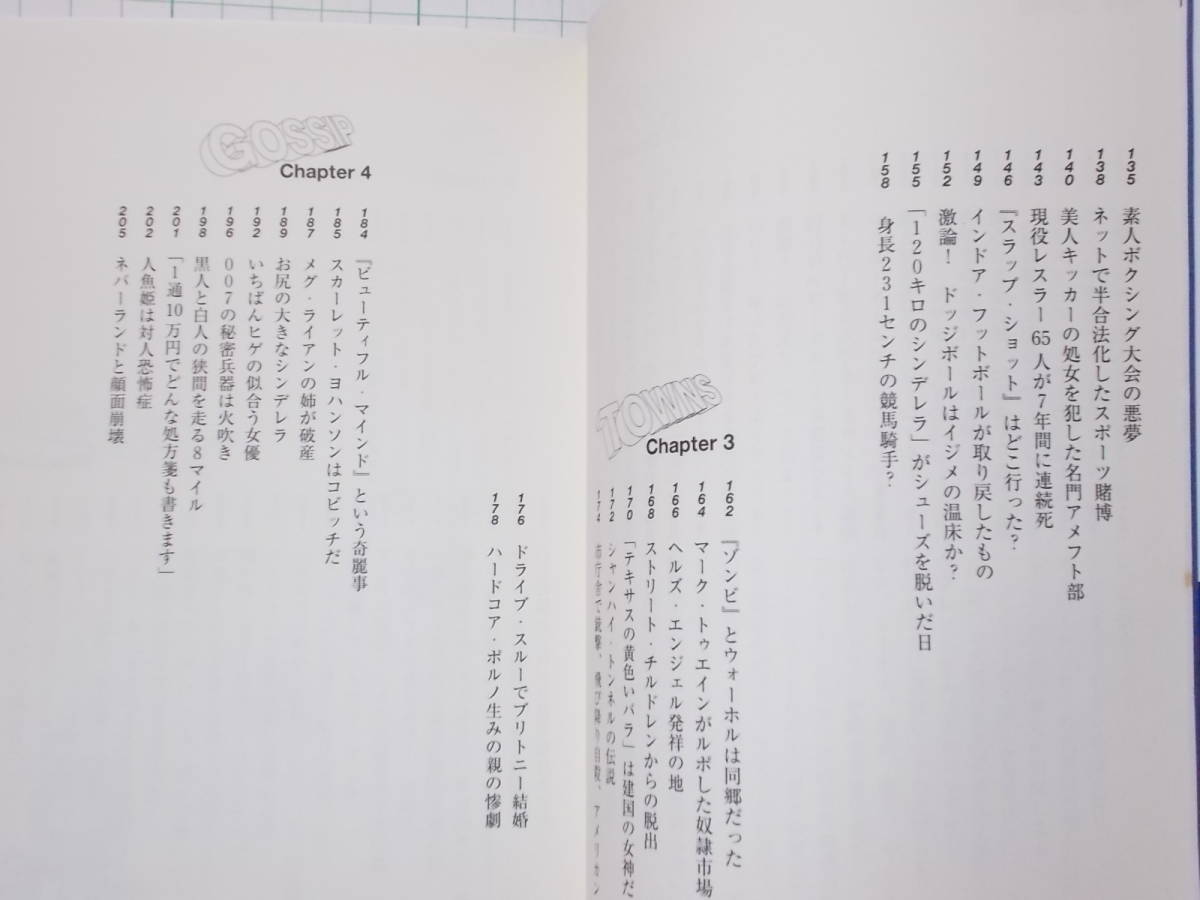 135 素人ボクシング大会の悪夢
138 ネットで半合法化したスポーツ賭博
140 美人キッカーの処女を犯した名門アメフト部
143 現役レスラー65人が7年間に連続死
146 『スラップ・ショット』はどこ行った?
149 インドア・フットボールが取り戻したもの
152 激論! ドッジボールはイジメの温床か?
155 「120キロのシンデレラ」がシューズを脱いだ日
158 身長231センチの競馬騎手?
TOWNS
Chapter 3
162 『ゾンビ』とウォーホルは同郷だった
164 マーク・トゥエインがルポした奴隷市場
166 ヘルズ・エンジェル発祥の地
168 ストリート・チルドレンからの脱出
170 「テキサスの黄色いバラ」は建国の女神だ
172 シャンハイ・トンネルの伝説
174 市庁舎で銃撃、飛び降り自殺、アメリカン
176 ドライブ・スルーでブリトニー結婚
178 ハードコア・ポルノ生みの親の惨劇
GOSSIP
Chapter 4
184 『ビューティフル・マインド』という奇麗事
185 スカーレット・ヨハンソンはコビッチだ
187 メグ・ライアンの姉が破産
189 お尻の大きなシンデレラ
192 いちばんヒゲの似合う女優
196 007の秘密兵器は火吹き
198 黒人と白人の狭間を走る8マイル
201 「1通10万円でどんな処方箋も書きます」
202 人魚姫は対人恐怖症
205 ネバーランドと顔面崩壊